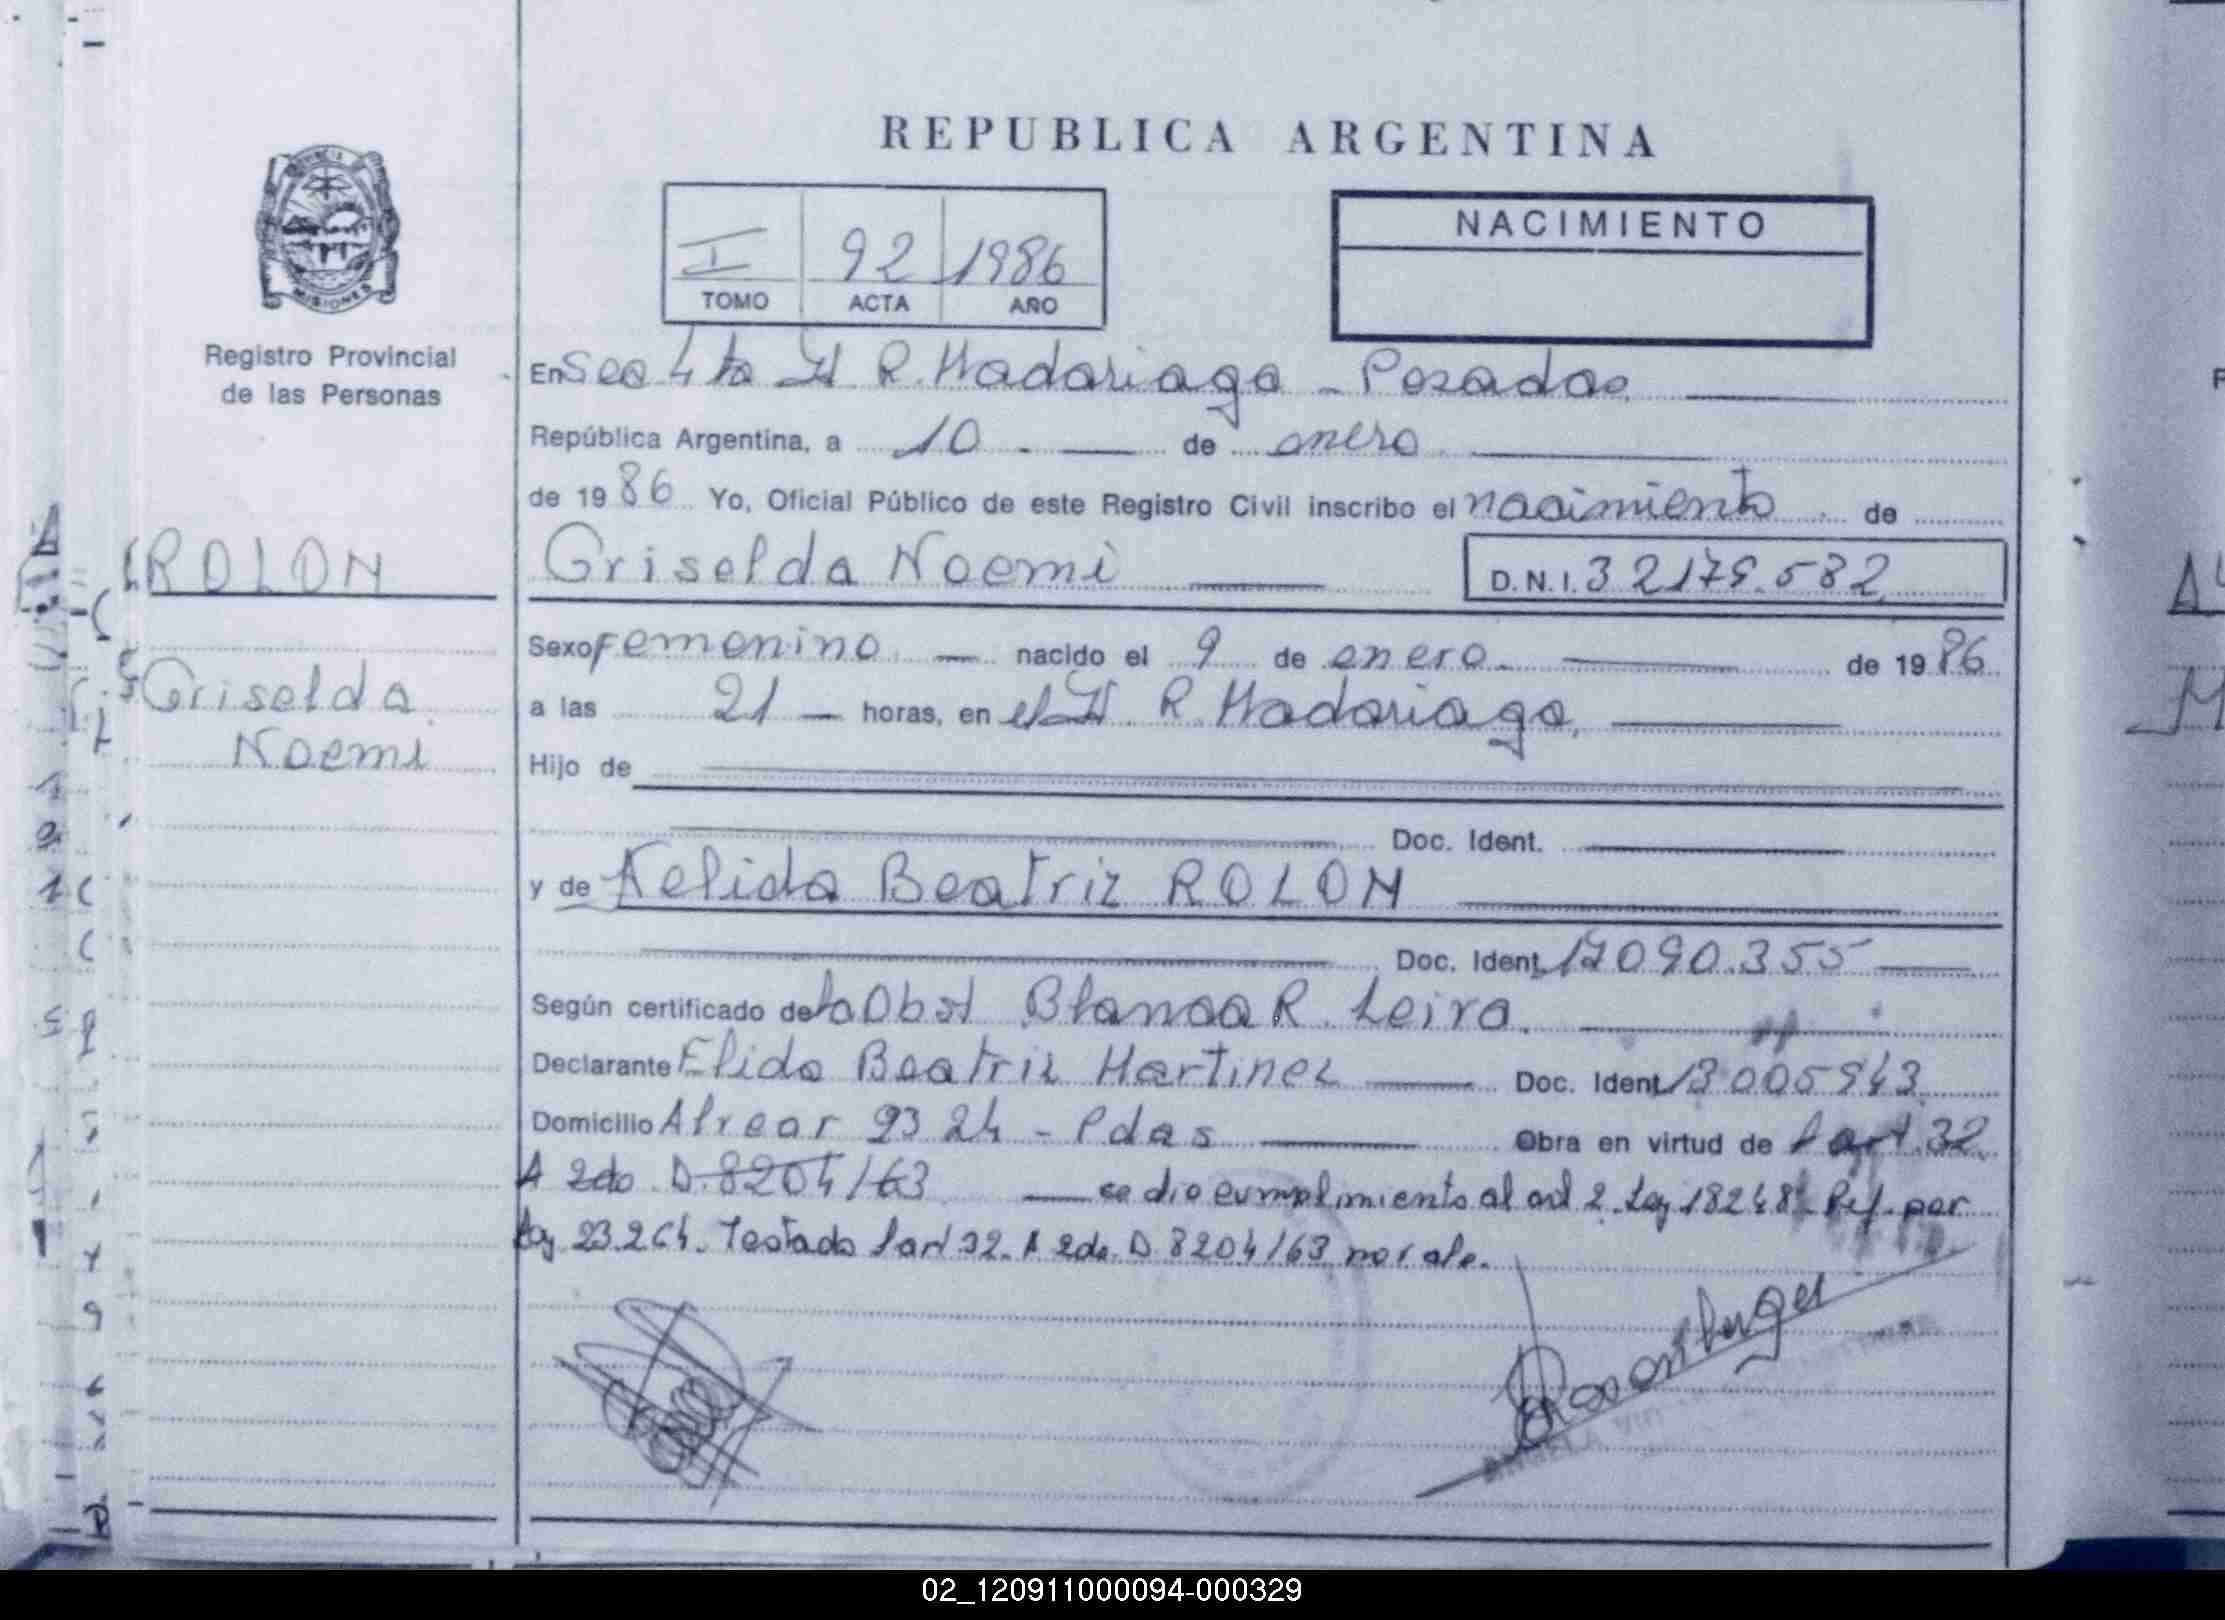 REPUBLICA ARGENTINA
I 92 1986
TOMO ACTA AÑO
NACIMIENTO
MISIONES
Registro Provincial
de las Personas
ROLON
Griselda
Noemi
En Sec 4ta H R. Madariaga - Posadas
República Argentina, a 10 de enero
de 1986 Yo, Oficial Público de este Registro Civil inscribo el nacimiento de
Griselda Noemi D.N.I. 32179.582
Sexo Femenino nacido el 9 de enero de 1986
a las 21 horas, en el H. R Madariaga,
Hijo de
Doc. Ident.
y de Nelida Beatriz ROLON
Doc. Ident. 17090.355
Según certificado de la Obst Blanca R. Leiva.
Declarante Elida Beatriz Martinez Doc. Ident. 13005943
Domicilio Alvear 2324 - Pdas Obra en virtud de I art. 32
A 2do D. 8204/63 se dio cumplimiento al art 2. Ley 18248 Ref. por
Ley 23.264. Testado I art 32. A 2do. D 8204/63 no vale.
02_120911000094-000329